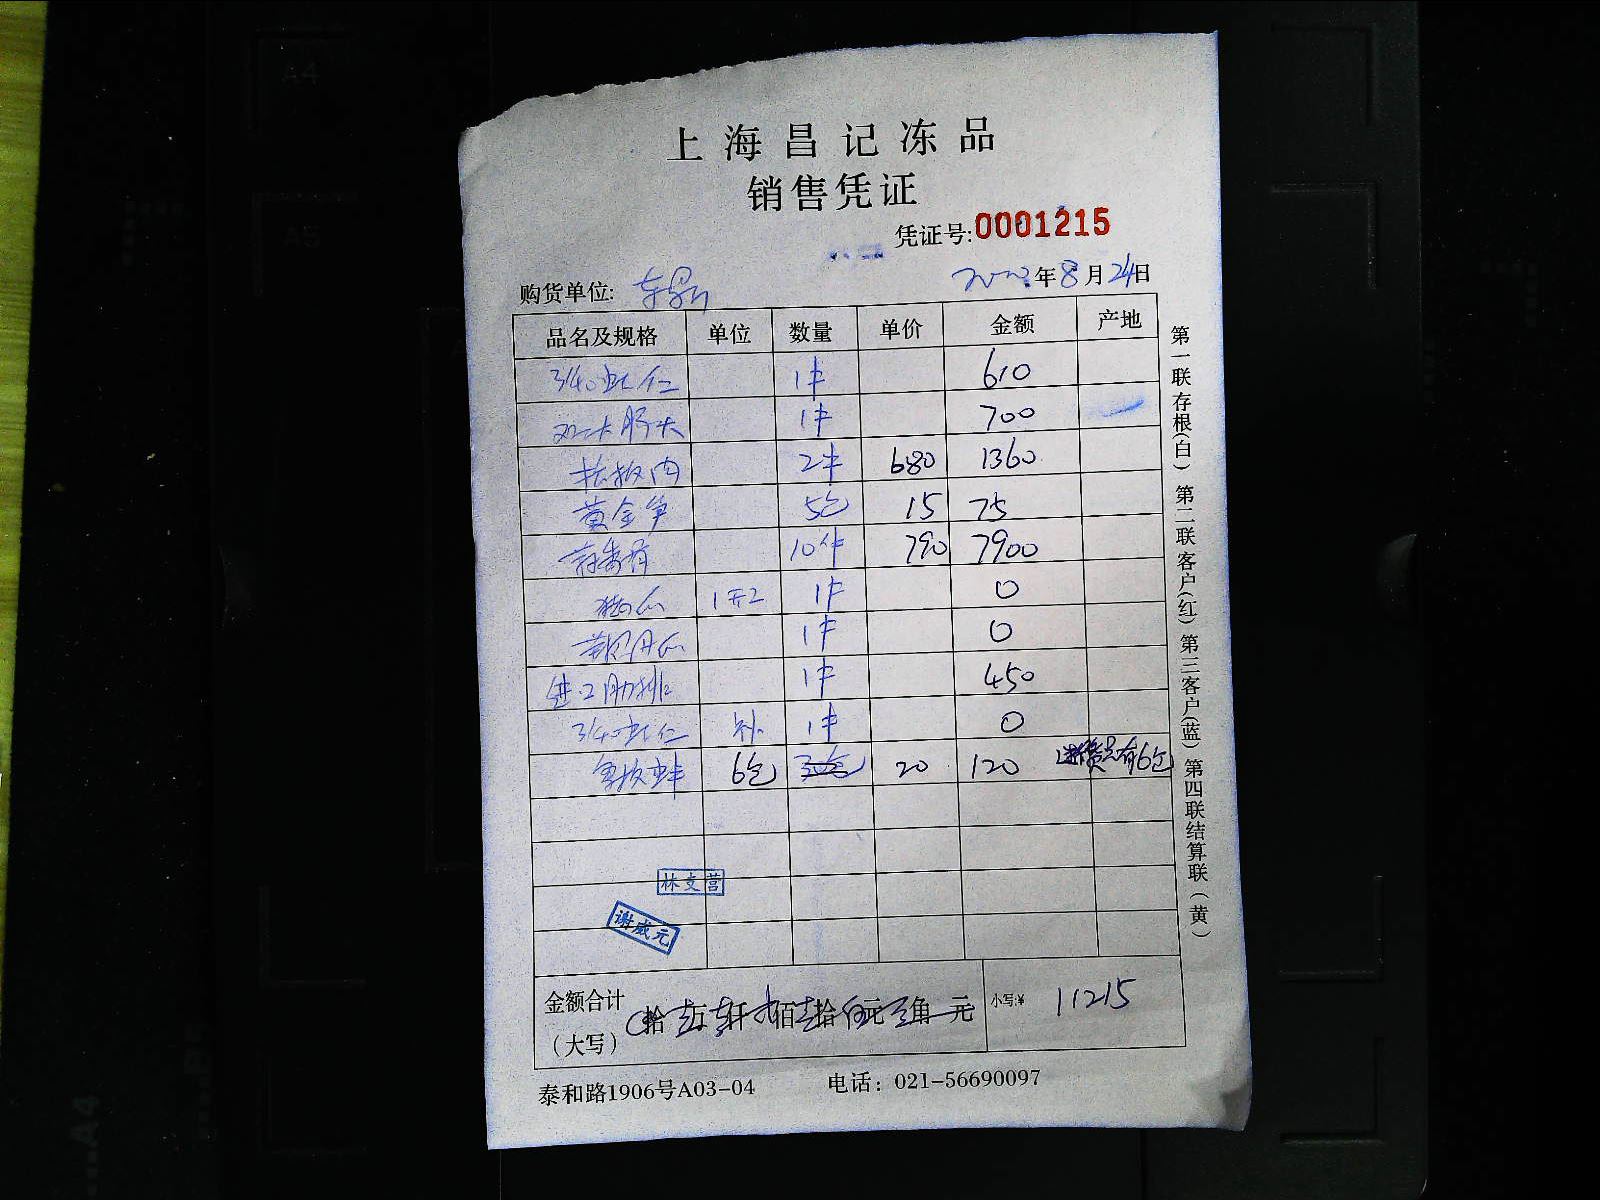 上海昌记冻品
销售凭证
凭证号:0001215
购货单位:
年8月24日
品名及规格 单位 数量 单价 金额 产地
3/40虾仁 1件 610
1件 700
2件 680 1360
黄金笋 5包 15 75
10件 790 7900
1开2 1件 0
1件 0
进口肋排 1件 450
3/40虾仁 补 1件 0
6包 20 120 6包
林支营
谢威元
金额合计
(大写) 拾 万 仟 佰 拾 元 角 元 小写:¥ 11215
泰和路1906号A03-04 电话: 021-56690097
第一联存根(白) 第二联客户(红) 第三客户(蓝) 第四联结算联(黄)
A4
A5